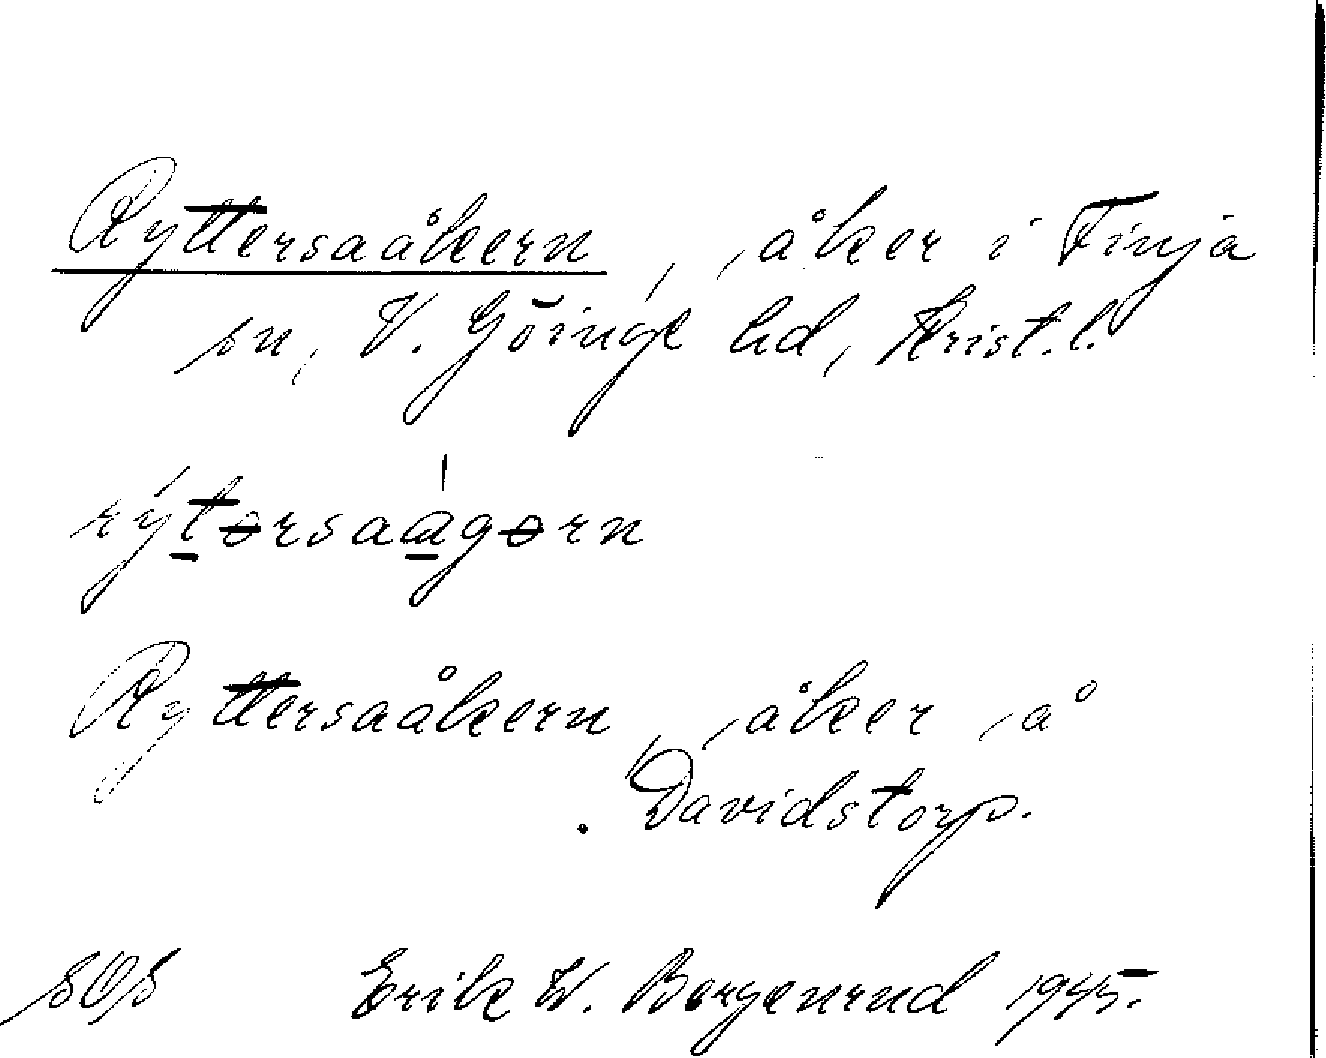 Ryttersaåkern, åker i Finja
sn, V. Göinge hd, Krist. l.
rýtərsaágərn
Ryttersaåkern, åker å
Davidstorp.
SOS Erik W. Bergenrud 1945.